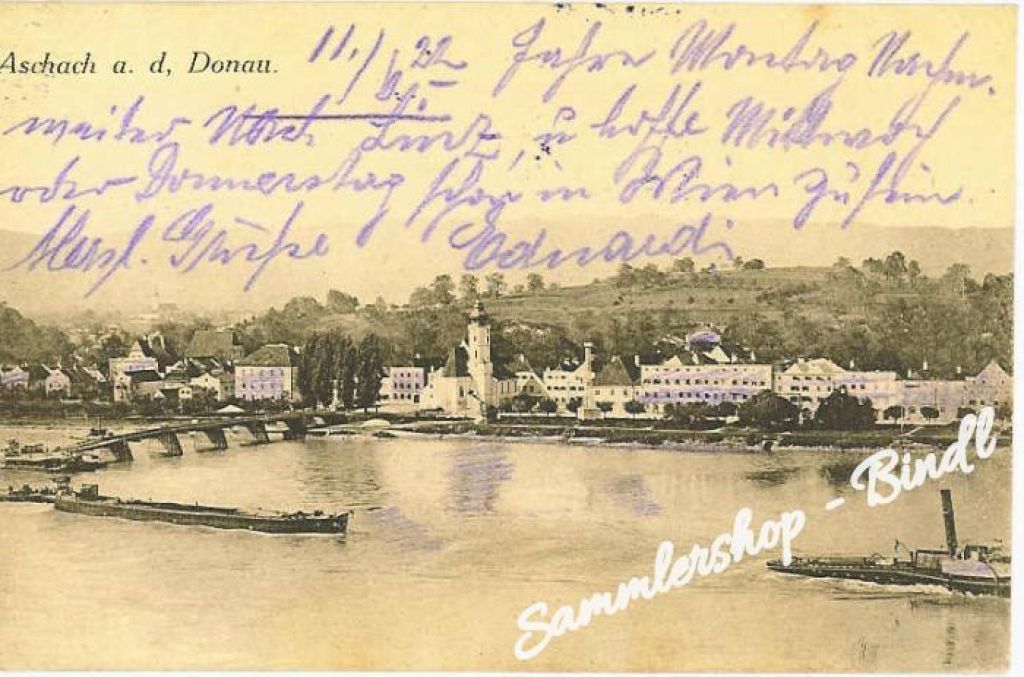 Aschach a. d, Donau.
11./ 22 Fahre Montag Nachm.
weiter Nach Linz, u hoffe Mittwoch
oder Donnerstag in Wien zu sein.
Herzl. Grüße Eduard
Sammlershop - Bindl